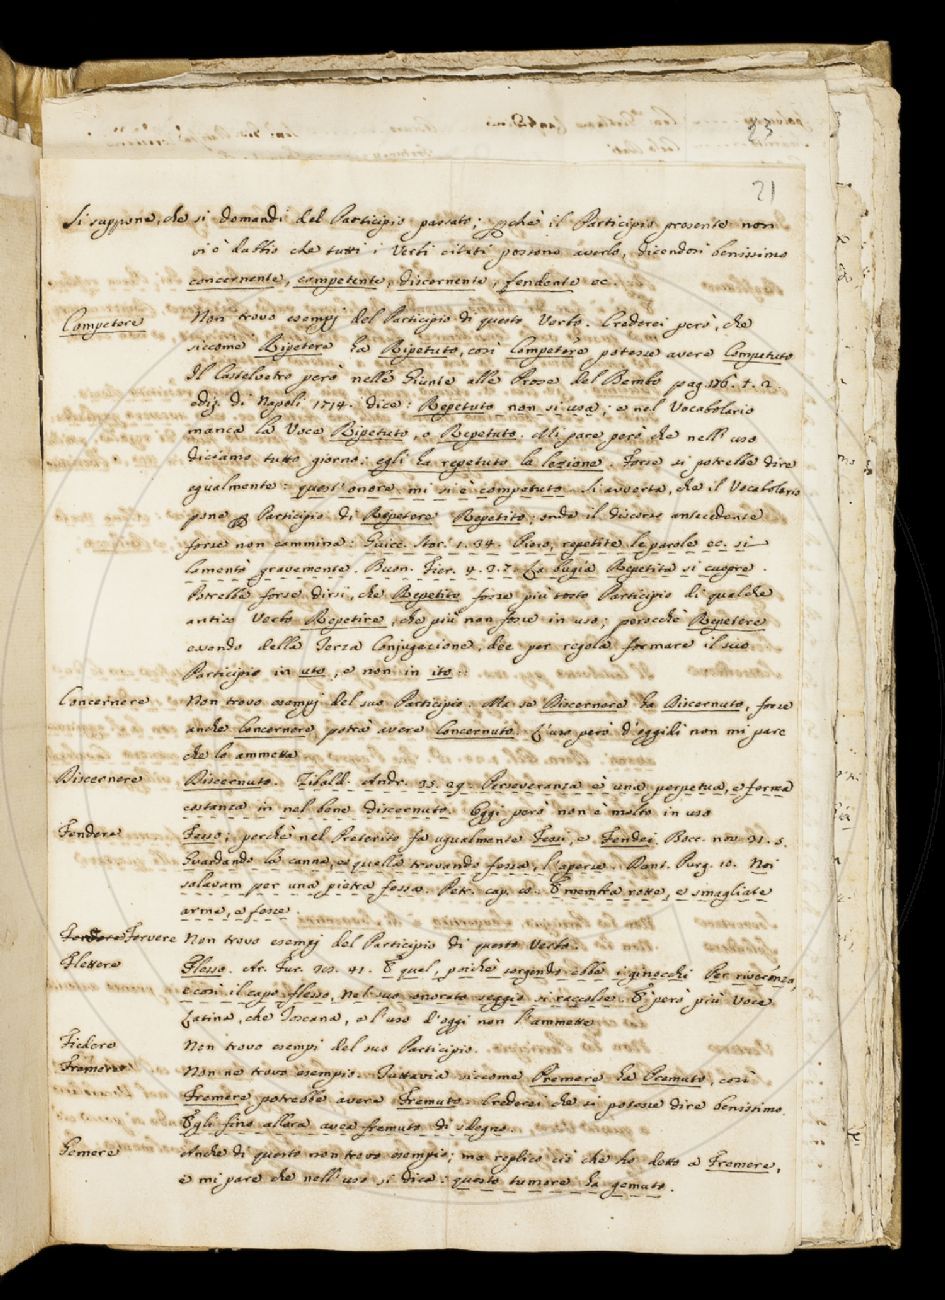 23
21
Si suppone, che si domandi del Participio passato; perchè il Participio presente non
vi è dubbio che tutti i Verbi citati possono averlo, dicendosi benissimo
concernente, competente, discernente, fendente ec.
Competere Non trovo esempj del Participio di questo Verbo. Crederei però, che
siccome Ripetere ha Ripetuto, così Competere potesse avere Competuto
Il Castelvetro però nelle Giunte alle Prose del Bembo pag. 176. t. 2.
ediz. di Napoli 1714. dice: Repetuto non si usa; e nel Vocabolario
manca la Voce Ripetuto, o Repetuto. Mi pare però che nell' uso
diciamo tutto giorno: egli ha repetuto la lezione. Forse si potrebbe dire
egualmente: quest' onore mi si è competuto. Si avverta, che il Vocabolario
pone per Participio di Repetere Repetito; onde il discorso antecedente
forse non cammina: Guicc. Stor. 1. 34. Piero, repetite le parole ec. si
lamentò gravemente. Buon. Fier. 4. 2. 7. La bugia Repetita si cuopre.
Potrebbe forse dirsi, che Repetito forse più tosto Participio di qualche
antico Verbo Repetire, che più non fosse in uso; perocchè Repetere
essendo della Terza Conjugazione, dee per regola formare il suo
Participio in uto, e non in ito.
Concernere Non trovo esempj del suo Participio. Ma se Discernere ha Discernuto, forse
anche Concernere potrà avere Concernuto. L'uso però d'oggidì non mi pare
che lo ammetta
Discernere Discernuto. Tibald. Andr. 35. 29. Perseveranza è una perpetua, e ferma
costanza in nel bene discernuto. Oggi però non è molto in uso
Fendere Fesso; perchè nel Preterito fa ugualmente Fessi, e Fendei. Bocc. nov. 31. 5.
Guardando la canna, e quella trovando fessa, l'aperse. Dant. Purg. 10. Noi
salavam per una pietra fessa. Petr. cap. 10. E membra rotte, e smagliate
arme, e fesse.
Fervere Non trovo esempj del Participio di questo Verbo.
Flettere Flesso. Ar. Fur. 41. E quel, poichè sorgendo ebbe i ginocchi Per riverenza,
e così il capo flesso, Nel suo onorato seggio si raccolse. È però più Voce
Latina, che Toscana, e l'uso d'oggi non l'ammette
Fiedere Non trovo esempi del suo Participio.
Fremere Non ne trovo esempio. Tuttavia siccome Premere ha Premuto, così
Fremere potrebbe avere Fremuto. Crederei che si potesse dire benissimo.
Egli fino allora avea fremuto di sdegno.
Gemere Anche di questo non trovo esempio; ma replico ciò che ho detto a Fremere,
e mi pare che nell' uso si dica: questo tumore ha gemuto.